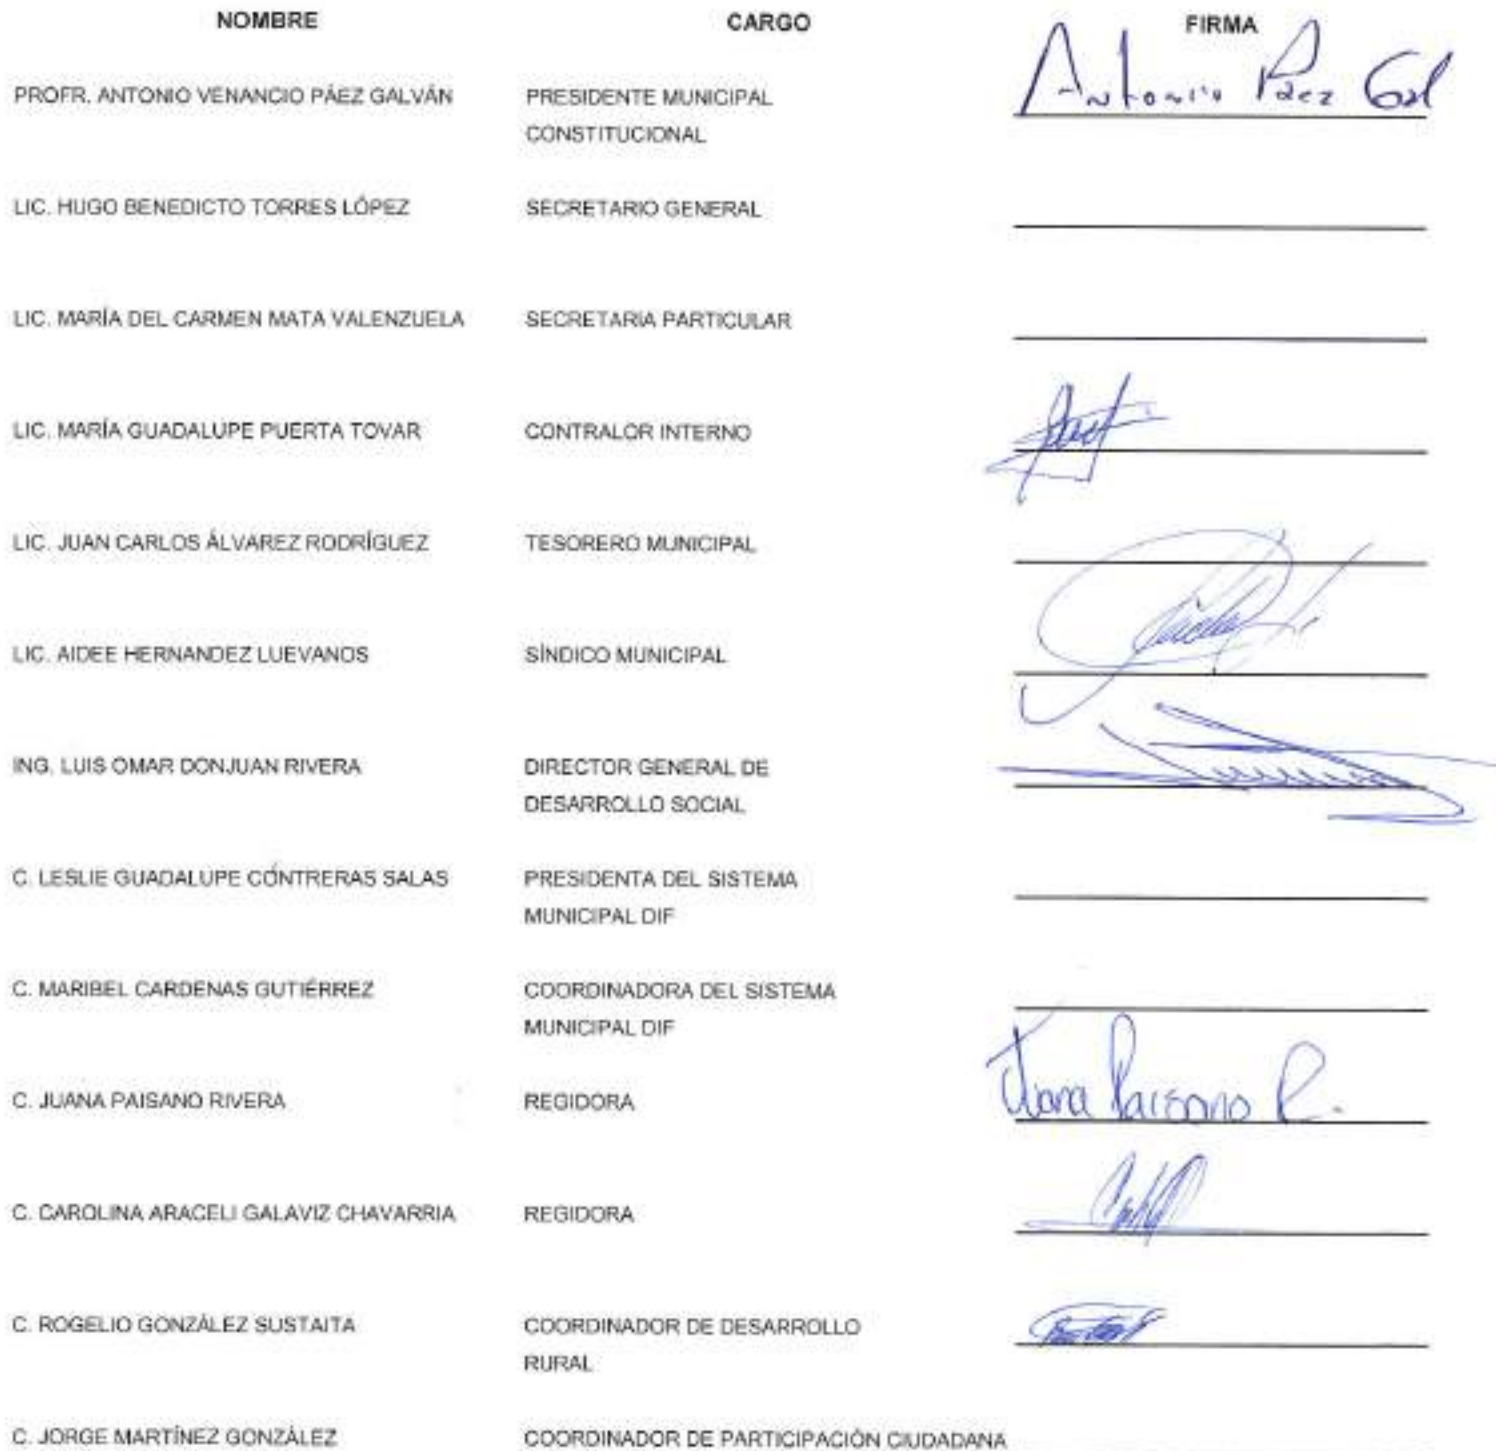 NOMBRE CARGO FIRMA
PROFR. ANTONIO VENANCIO PÁEZ GALVÁN PRESIDENTE MUNICIPAL Antonio Páez Gal
CONSTITUCIONAL
LIC. HUGO BENEDICTO TORRES LÓPEZ SECRETARIO GENERAL
LIC. MARÍA DEL CARMEN MATA VALENZUELA SECRETARIA PARTICULAR
LIC. MARÍA GUADALUPE PUERTA TOVAR CONTRALOR INTERNO
LIC. JUAN CARLOS ÁLVAREZ RODRÍGUEZ TESORERO MUNICIPAL
LIC. AIDEE HERNANDEZ LUEVANOS SÍNDICO MUNICIPAL
ING. LUIS OMAR DONJUAN RIVERA DIRECTOR GENERAL DE
DESARROLLO SOCIAL
C. LESLIE GUADALUPE CONTRERAS SALAS PRESIDENTA DEL SISTEMA
MUNICIPAL DIF
C. MARIBEL CARDENAS GUTIÉRREZ COORDINADORA DEL SISTEMA
MUNICIPAL DIF
C. JUANA PAISANO RIVERA REGIDORA Juana Paisano R.
C. CAROLINA ARACELI GALAVIZ CHAVARRIA REGIDORA
C. ROGELIO GONZÁLEZ SUSTAITA COORDINADOR DE DESARROLLO
RURAL
C. JORGE MARTÍNEZ GONZÁLEZ COORDINADOR DE PARTICIPACIÓN CIUDADANA